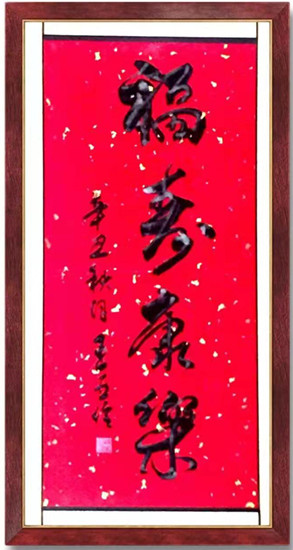 福寿康樂
辛丑秋月